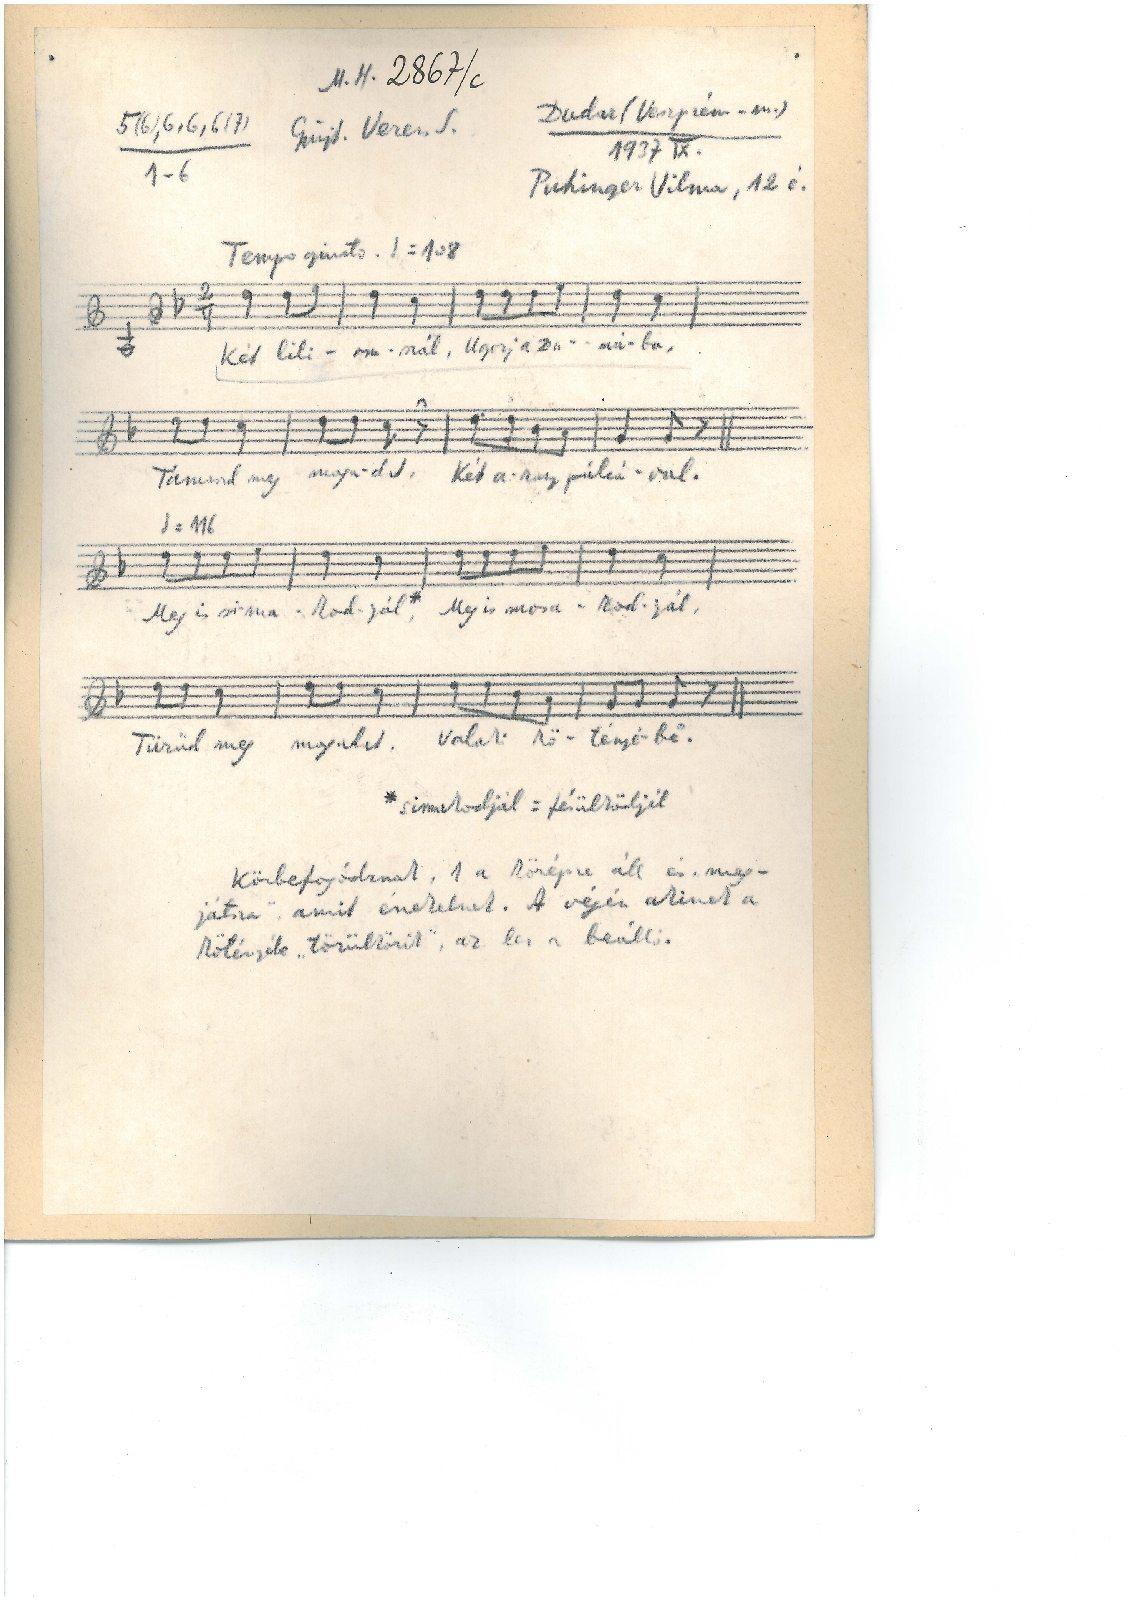 M. H. 2867/c
5(6), 6, 6, 6(7)
1-6
Gyűjt. Veress S.
Dudar (Veszprém-m.)
1937 IX.
Puhinger Vilma, 12 é.
Tempo giusto. ♩ = 108
2/4
Két lili - om - szál, Ugorj a Du - ná - ba,
Támaszd meg maga - dat, Két a - rany pálcá - val.
♩ = 116
Meg is sima - kod - jál,* Meg is mosa - kod - jál,
Türüld meg magadat, Valaki kö - tényé - bë.
*simakodjál = fésülködjél
Körbefogódznak, 1 a középre áll és „meg-
játsza" amit énekelnek. A végén akinek a
kötényébe „törülközik", az lesz a beálló.